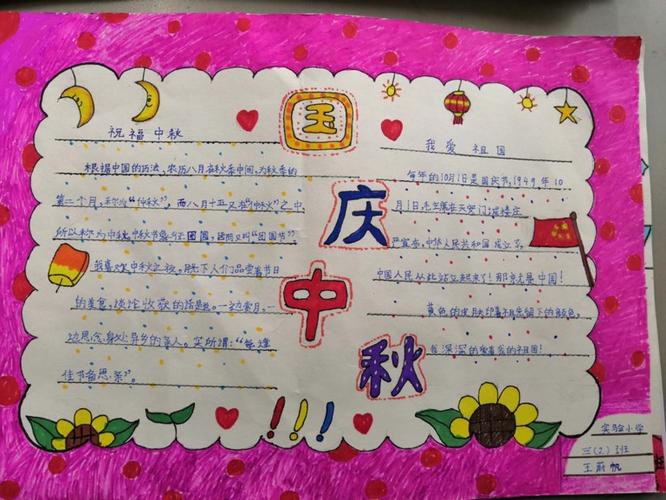 国
庆
中
秋
祝福中秋
根据中国的历法,农历八月在秋季中间,为秋季的
第二个月,称为“仲秋”,而八月十五又在“仲秋”之中
所以称为中秋。中秋节 团圆,因而又叫“团圆节”
我喜欢中秋之夜。月光下人们品尝着节日
的美食,谈论收获的话题。一边赏月,
边思念身处异乡的亲人。实所谓:“每逢
佳节备思亲”。
我爱祖国
每年的10月1日是国庆节,1949年10
月1日,毛主席在天安门城楼庄
严宣布,中华人民共和国成立了。
中国人民从此站立起来了!那就是中国!
黄色的皮肤印着 留下的颜色。
我深深的爱着我的祖国!
实验小学
三(2)班
王蔚帆